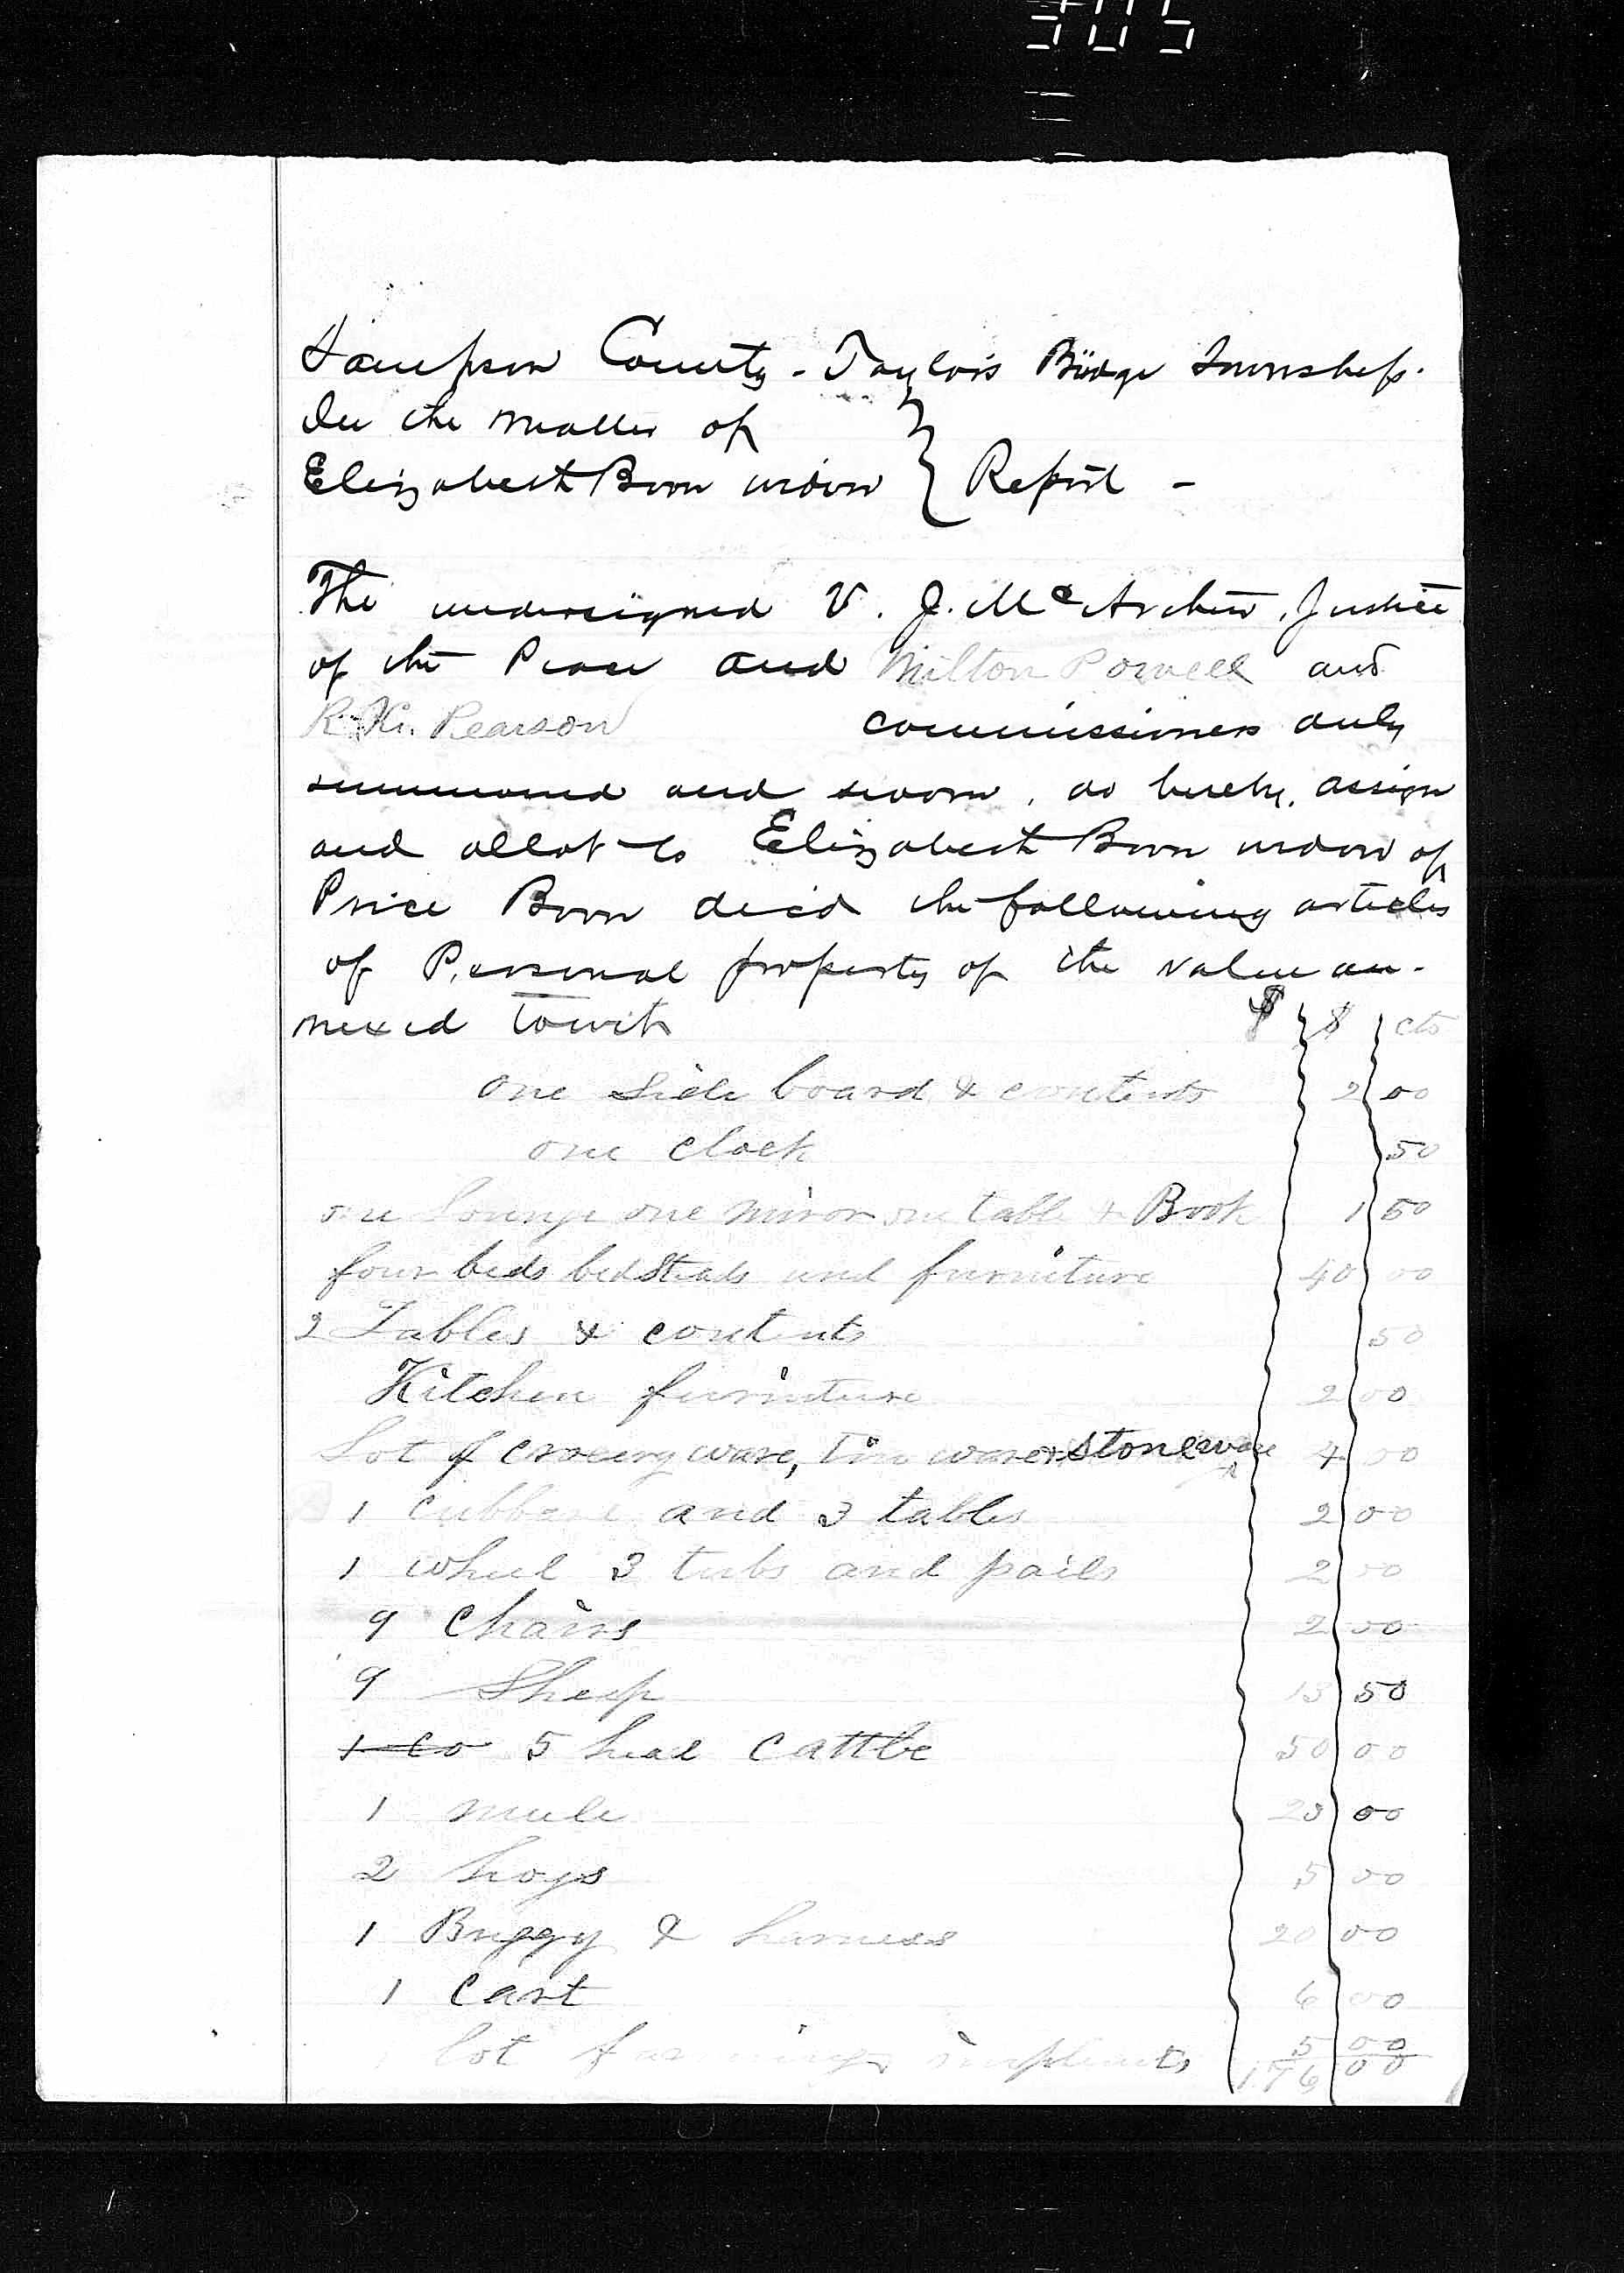 305
Sampson County - Taylors Bridge Township.
In the matter of
Elizabeth Boon widow } Report -
The undersigned V. J. McArthur, Justice
of the Peace and Milton Powell and
R. K. Pearson commissioners duly
summoned and sworn, do hereby, assign
and allot to Elizabeth Boon widow of
Price Boon dec'd the following articles
of Personal property of the value an-
nexed towit $ $ cts
one Side board & contents 2 00
one clock 50
one lounge one miror one table & Book 1 50
four beds bedsteads and furniture 40 00
2 Tables & contents 50
Kitchen furniture 2 00
Lot of crocery ware, tin ware & stoneware 4 00
1 cubbard and 3 tables 2 00
1 wheel 3 tubs and pails 2 00
9 Chairs 2 00
9 Sheep 13 50
1 co 5 head cattle 50 00
1 mule 20 00
2 hogs 5 00
1 Buggy & harness 20 00
1 cart 6 00
lot farming implements 5 00
176 00